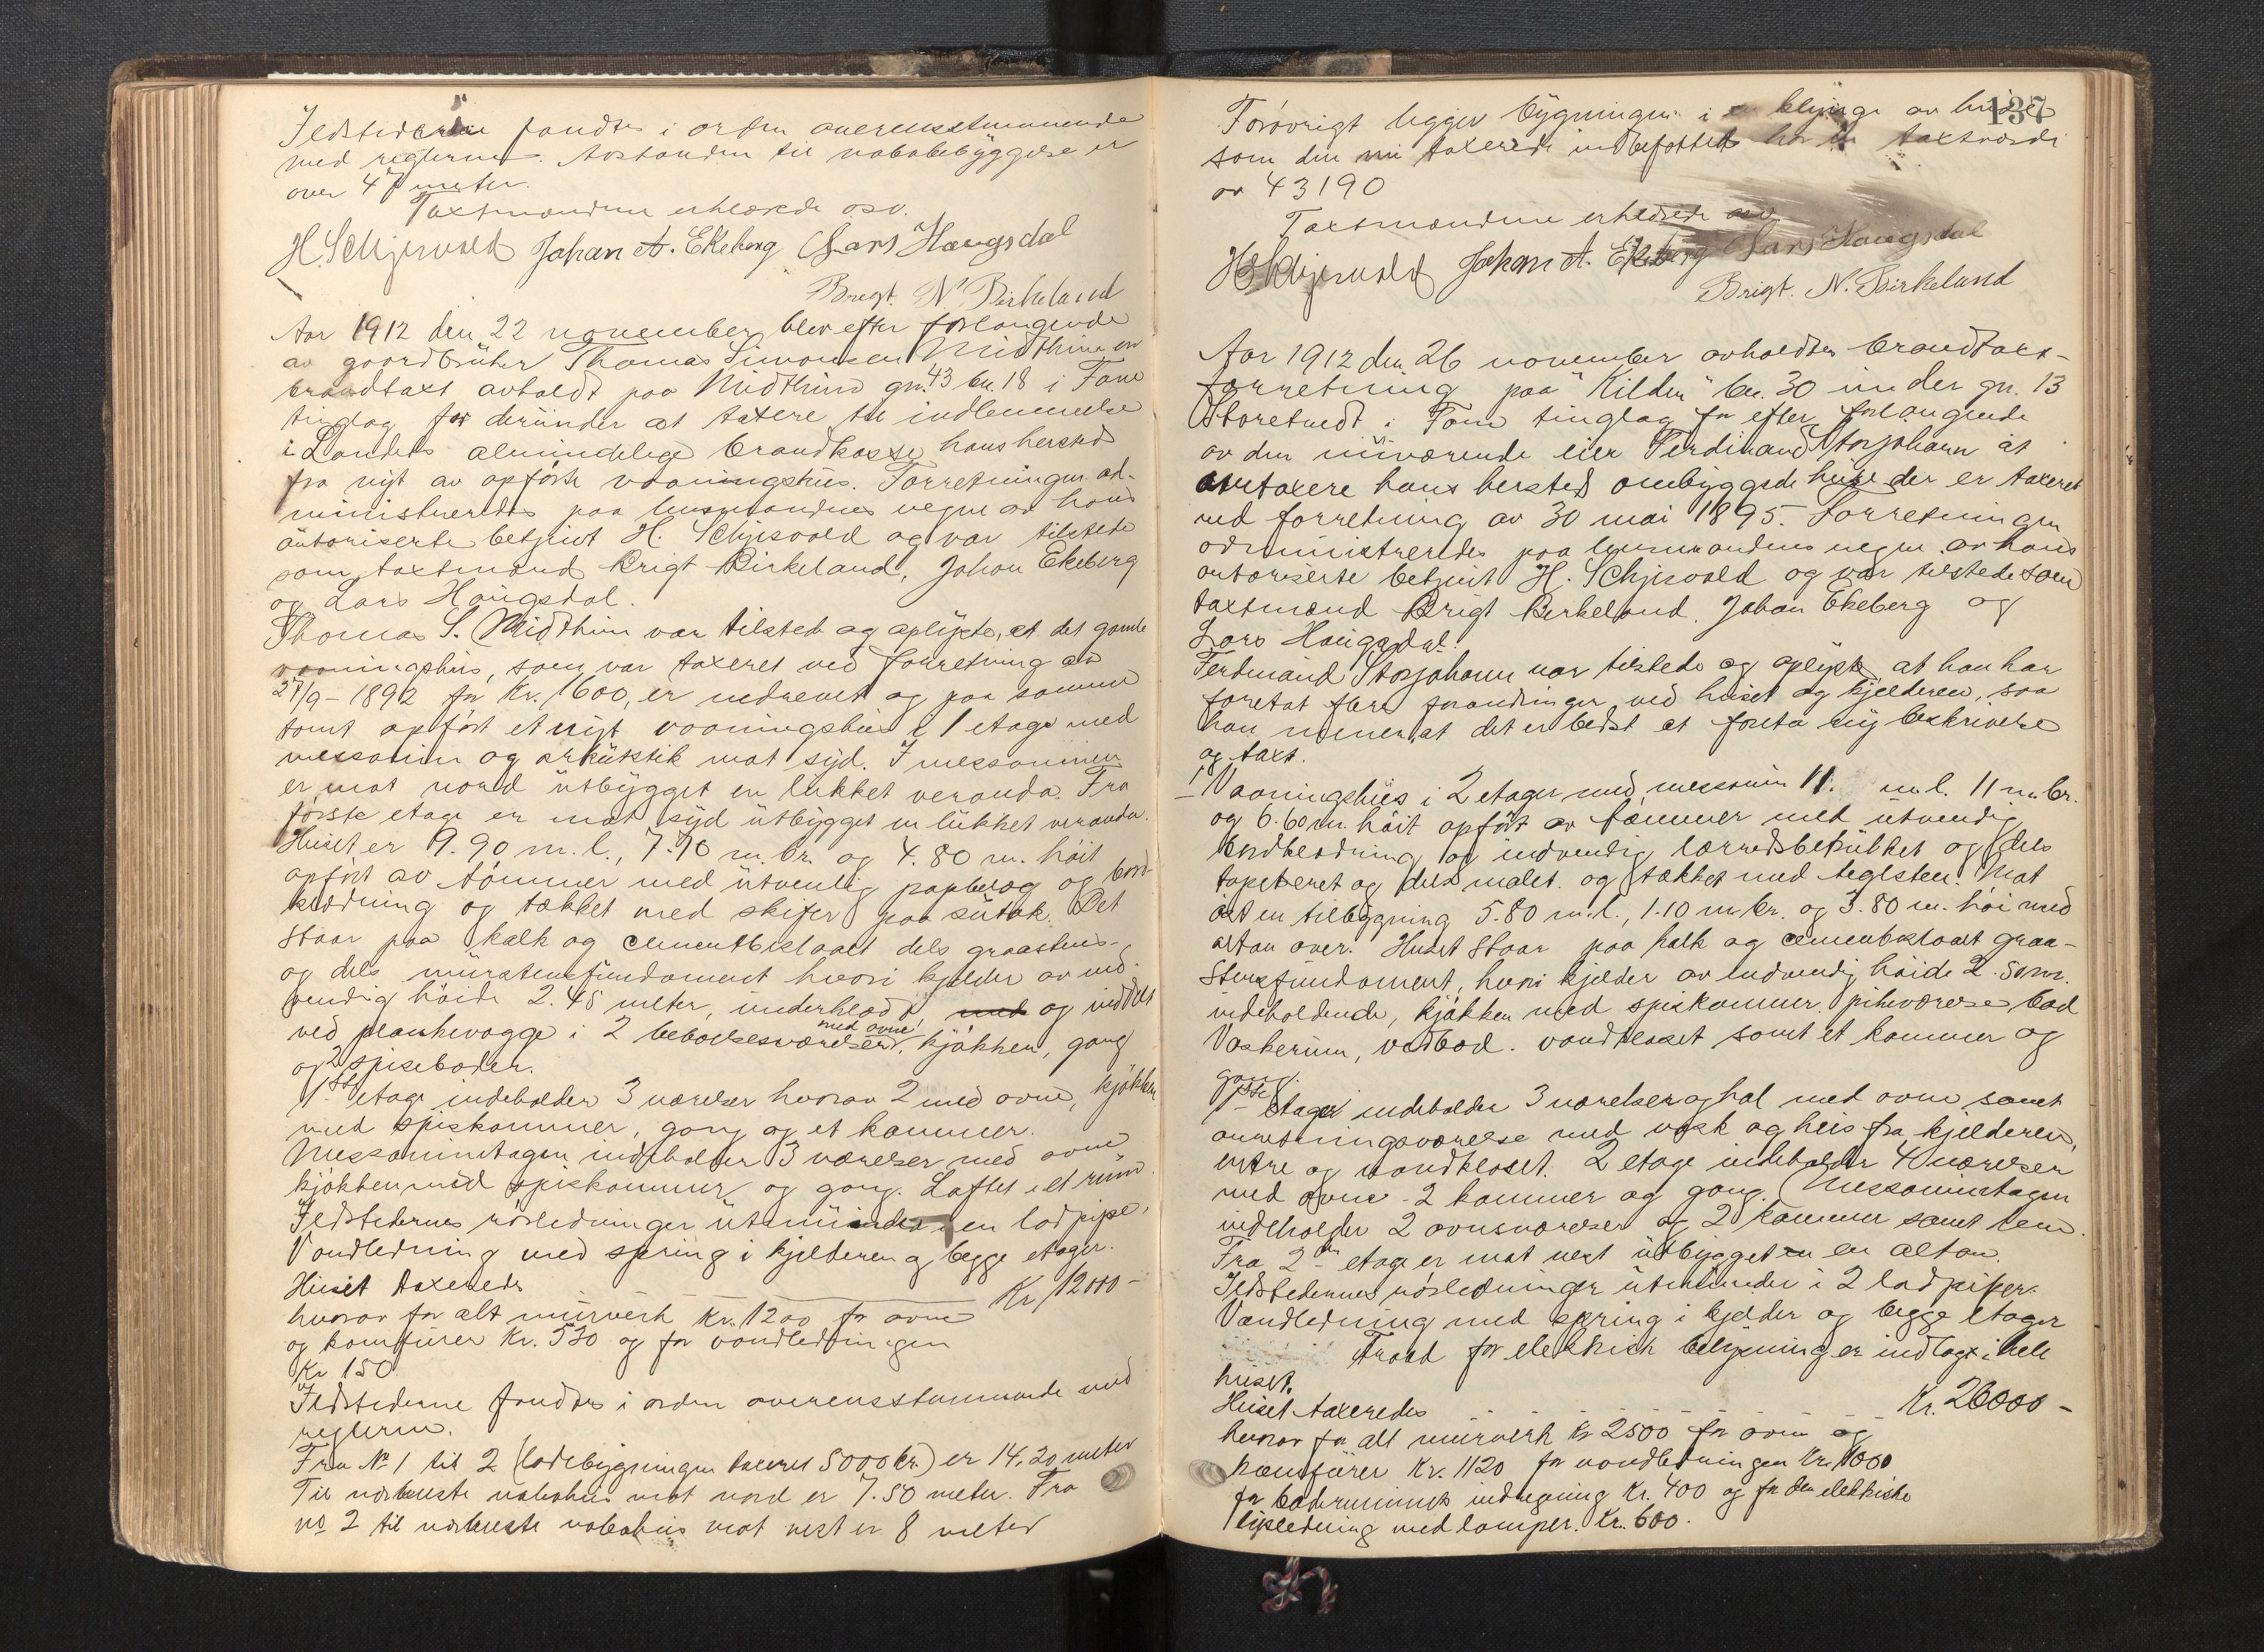 Ildstederne fandtes i orden overensstemmende
med reglerne. Avstanden til nabobebyggelse er
over 47 meter.
Taxtmændene erklærede osv.
H. Schjervold Johan A. Ekeberg Lars Haugsdal
Brigt. N. Birkeland
Aar 1912 den 22 november blev efter forlangende
av gaardbruker Thomas Simonsen Midthun en
brandtaxt avholdt paa Midthun gn. 43 bn. 18 i Fane
tinglag for derunder at taxere til indlemmelse
i Landets almindelige brandkasse hans hersted
fra nyt av opførte vaaningshus. Forretningen ad-
ministreredes paa lensmandens vegne av hans
autoriserte betjent H. Schjervold og var tilstede
som taxtmænd Brigt Birkeland, Johan Ekeberg
og Lars Haugsdal.
Thomas S. Midthun var tilstede og oplyste, at det gamle
vaaningshus, som var taxeret ved forretning av
27/9-1892 for Kr. 1600, er nedrevet og paa samme
tomt opført et nyt vaaningshus i 1 etage med
messanin og arkitstik mot syd. I messaninen
er mot nord utbygget en lukket veranda. Fra
første etage er mot syd utbygget en lukket veranda.
Huset er 9.90 m. l., 7.70 m. br. og 4.80 m. høit
opført av tømmer med utvendig papbelæg og bord
klædning og tækket med skifer paa sutak. Det
staar paa kalk og cementbeslaaet dels graastens-
og dels murstensfundament hvori kjelder av ind-
vendig høide 2.45 meter, underklædd, og inddelt
ved plankevægge i 2 beboelsesværelser med ovne, kjøkken, gang
og 2 spiseboder.
1ste etage indeholder 3 værelser hvorav 2 med ovne, kjøkken
med spiskammer, gang og et kammer.
Messaninetagen indeholder 3 værelser med ovne
kjøkken med spiskammer og gang. Loftet i et rum.
Ildstedernes rørledninger utmunder i en lodpipe,
Vandledning med spring i kjelderen og begge etager.
Huset taxeredes Kr. 12000-
hvorav for alt murverk Kr. 1200 for ovne
og komfurer Kr. 530 og for vandledningen
Kr 150
Ildstederne fandtes i orden overensstemmende med
reglerne.
Fra No 1 til 2 (ladebygningen taxeret 5000 kr.) er 14.20 meter
Til nærmeste nabohus mot nord er 7.50 meter. Fra
no 2 til nærmeste nabohus mot vest er 8 meter
137
Forøvrigt ligger bygningen i en klynge av huse
som den nu taxerede indbefattet har en taxtværdi
av 43190
Taxtmændene erklærede osv
H. Schjervold Johan A. Ekeberg Lars Haugsdal
Brigt. N. Birkeland
Aar 1912 den 26 november avholdtes brandtaxt-
forretning paa "Kilden" bn. 30 under gn. 13
Storetvedt i Fane tinglag for efter forlangende
av den nuværende eier Ferdinand Storjohann at
omtaxere hans hersteds ombyggede huse der er taxeret
ved forretning av 30 mai 1895. Forretningen
administreredes paa lensmandens vegne av hans
autoriserte betjent H. Schjervold og var tilstede som
taxtmænd Brigt Birkeland, Johan Ekeberg og
Lars Haugsdal.
Ferdinand Storjohann var tilstede og oplyste, at han har
foretat flere forandringer ved huset og kjelderen, saa
han mener, at det er bedst at foreta ny beskrivelse
og taxt.
1 Vaaningshus i 2 etager med messanin 11. m. l. 11 m. br.
og 6.60 m. høit opført av tømmer med utvendig
bordklædning og indvendig lærredsbetrukket og dels
tapetseret og dels malet og tækket med teglsten. Mot
øst en tilbygning 5.80 m. l., 1.10 m. br. og 3.80 m. høi med
altan over. Huset staar paa kalk og cementbeslaaet graa-
stensfundament, hvori kjelder av indvendig høide 2.50 m.
indeholdende, kjøkken med spiskammer, pikeværelse, bad
Vaskerum, vedbod, vandkloset samt et kammer og
gang.
1ste etage indeholder 3 værelser og hal med ovne samt
anretningsværelse med vask og heis fra kjelderen,
entre og vandkloset. 2 etage indeholder 4 værelser
med ovne - 2 kammer og gang. Messaninetagen
indeholder 2 ovnsværelser og 2 kammer samt lem.
Fra 2den etage er mot vest utbygget en altan.
Ildstedernes rørledninger utmunder i 2 lodpiper.
Vandledning med spring i kjelder og begge etager
Traad for elektrisk belysning er indlagt i hele
huset.
Huset taxeredes Kr. 26000-
hvorav for alt murverk kr 2500 for ovne og
komfurer Kr. 1120 for vandledningen Kr. 1000
for baderummets indregning Kr. 400 og for den elektriske
lysledning med lamper. Kr. 600.